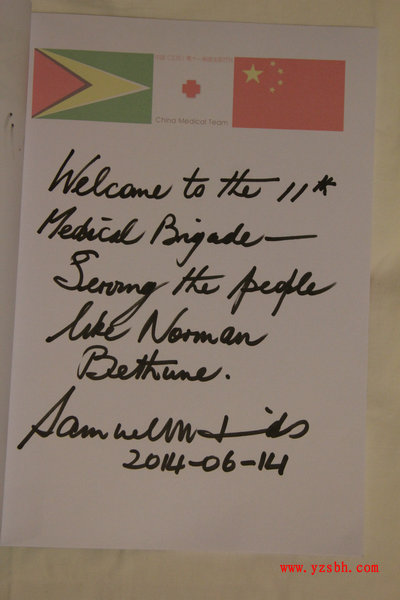 China Medical Team
Welcome to the 11th
Medical Brigade—
Serving the people
like Norman
Bethune.
Samuel
2014-06-14
www.yzsbh.com